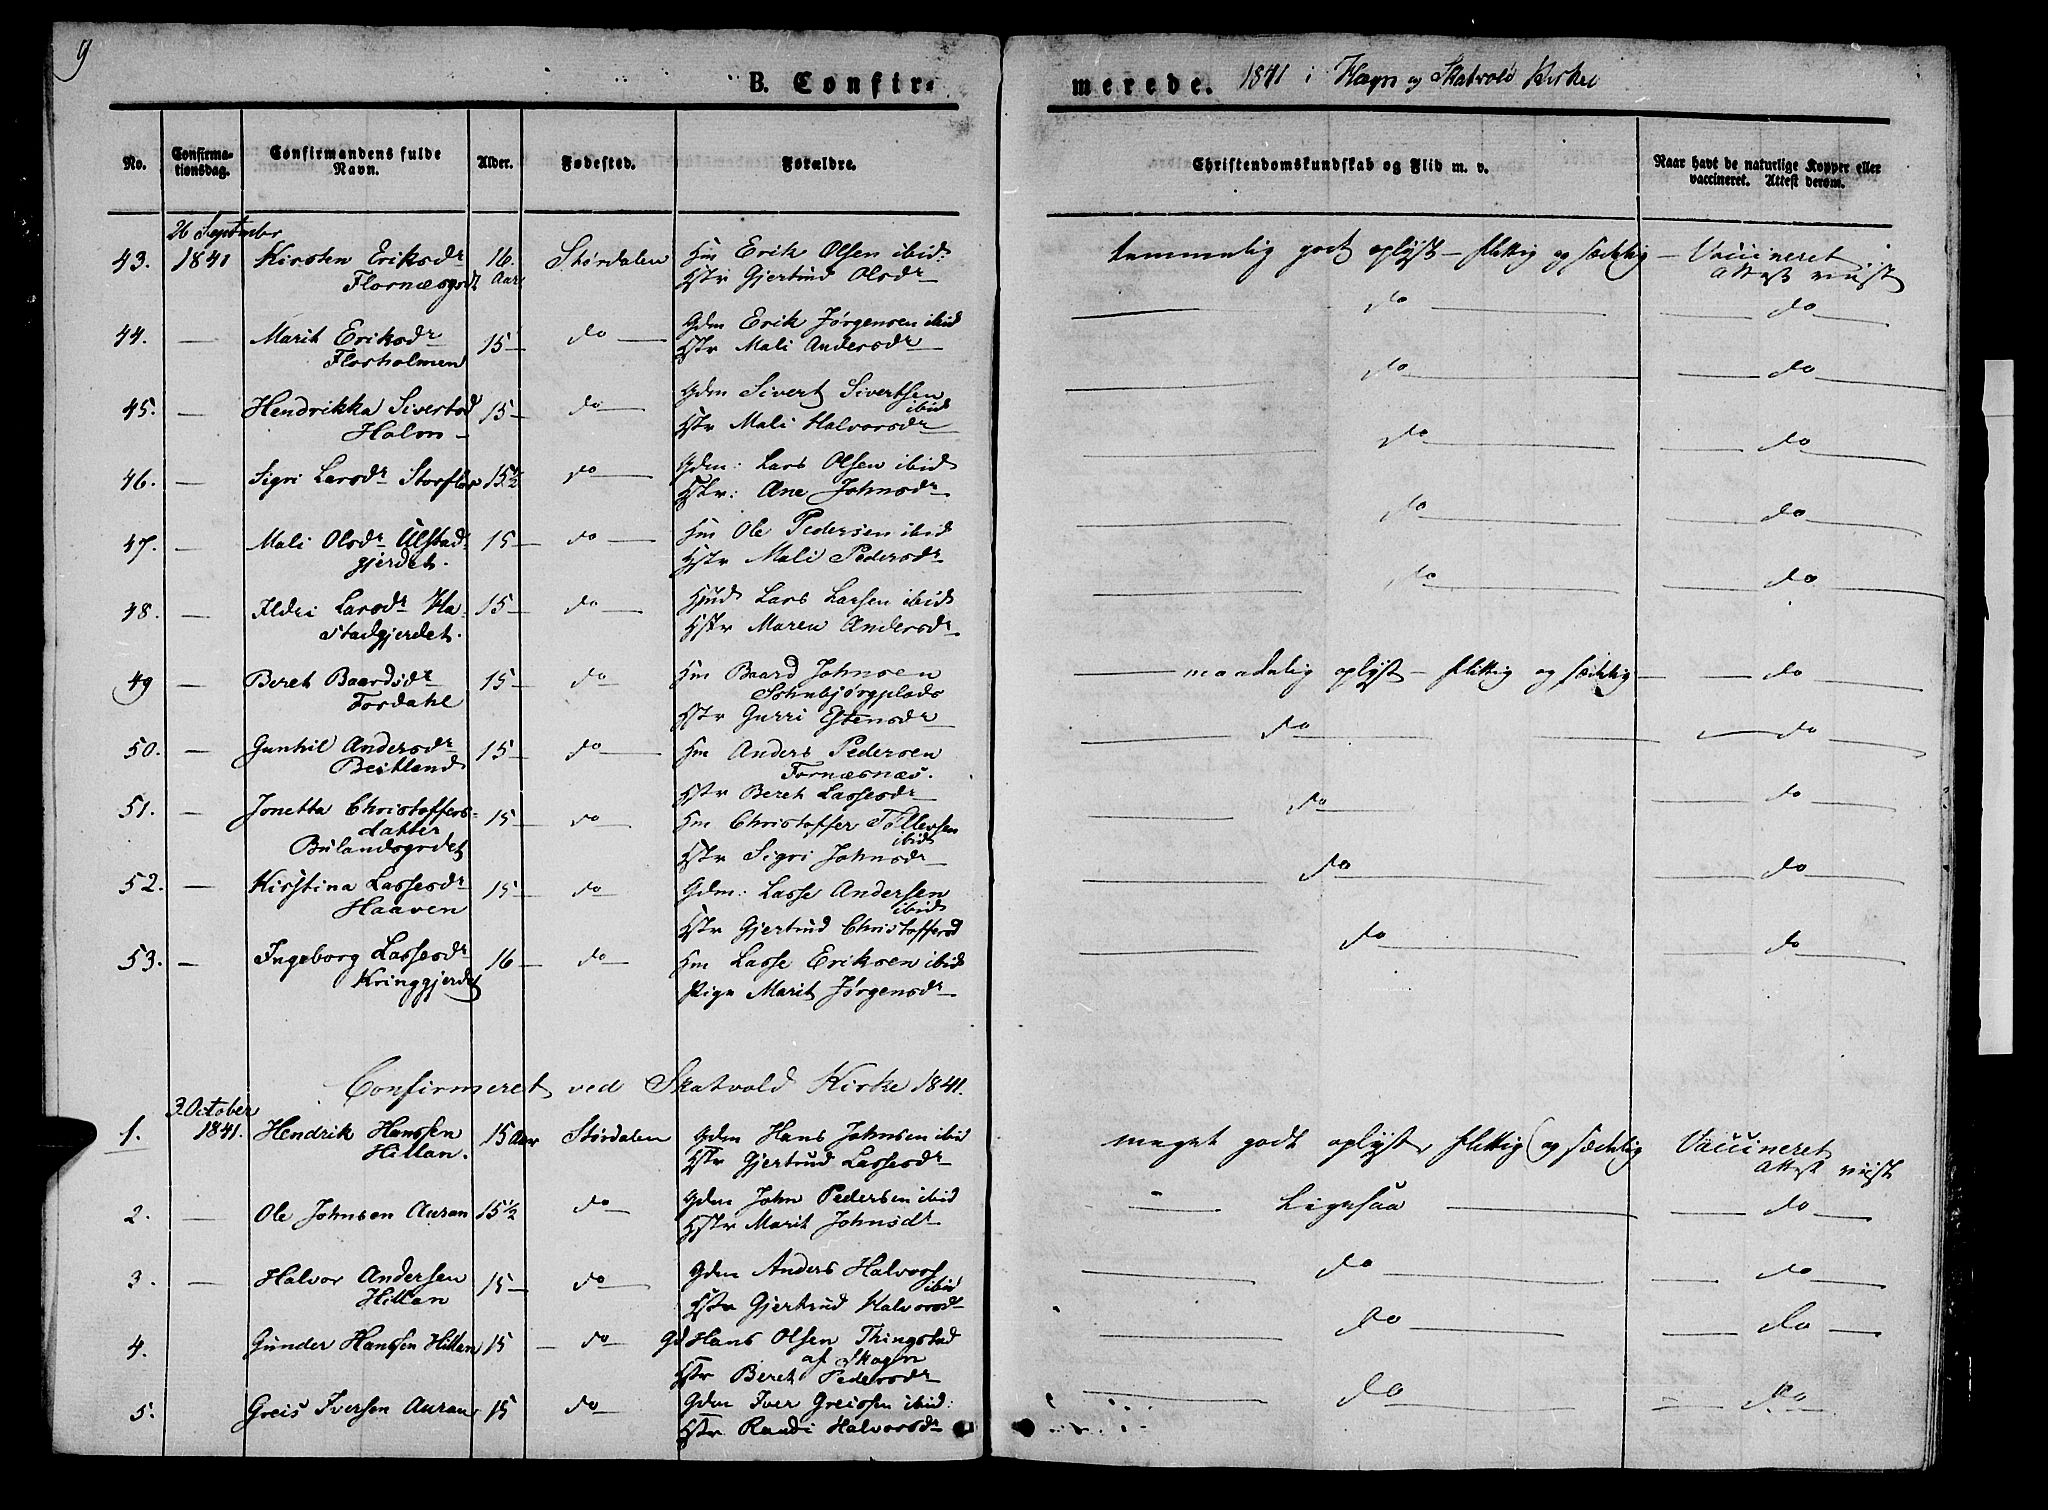 9
B. Confir-
merede. 1841 i Hægn og Skatvold Kirker
No.
Confirma-
tionsdag.
Confirmandens fulde
Navn.
Alder.
Fødested.
Forældre.
Christendomskundskab og Flid m. v.
Naar havt de naturlige Kopper eller
vaccineret. Attest derom.
26 September
43. 1841 Kirsten Eriksdr 16. Størdalen Hm Erik Olsen ibid: temmelig godt oplyst – flittig og sædelig – Vaccineret
Flornæsgrdt Aar Hstr Gjertrud Olsdr attest viist
44. — Marit Eriksdr 15 — do — Gdm Erik Jørgensen ibid — do — do —
Florholmen Hstr Mali Andersdr
45. — Hendrikka Sivertsd 15 — do — Gdm Sivert Sivertsen — do — do —
Halm ibid
Hstr Mali Halvorsdr
46. — Sigri Larsdr Storflor 15½ do — Gdm: Lars Olsen ibid — do — do —
Hstr: Ane Johnsdr
47. — Mali Olsdr Ulstad- 15 — do — Hm Ole Pedersen ibid — do — do —
gjerdet. Hstr Mali Pedersdr
48. — Ildri Larsdr Ha- 15 — do — Hjud Lars Larsen ibid — do — do —
stadgjerdet. Hstr Maren Andersdr
49 — Beret Baardsdr 15 — do — Hm Baard Johnsen — maadelig oplyst – flittig og sædelig — do —
Fordahl
Hstr Gurri Estensdr
50. — Gunhil Andersdr 15 — do — Hm Anders Pedersen — do — do —
Beitland Fornæsnæs.
Hstr Beret Lassesdr
51. — Jonetta Christoffers- 15 — do — Hm Christoffer Tollevsen — do — do —
datter ibid
Bulandsgrdet Hstr Sigri Johnsdr
52. — Kirstina Lassesdr 15 — do — Gdm: Lasse Andersen — do — do —
Haaven ibid
Hstr Gjertrud Christoffersd
53. — Ingeborg Lassesdr 16 — do — Hm Lasse Eriksen ibid — do — do —
Kringgjerdet Pige Marit Jørgensdr
Confirmeret ved Skatvold Kirke 1841.
3 October
1. 1841. Hendrik Hanssen 15 Aar Størdalen Gdm Hans Johnsen ibid meget godt oplyst, flittig og sædelig Vaccineret
Hillan. Hstr Gjertrud Lassesdr attest viist
2. — Ole Johnsen Auran 15½ do — Gdm John Pedersen ibid — Ligesaa — do —
Hstr Marit Johnsdr
3. — Halvor Andersen 15 — do — Gdm Anders Halvors — do — do —
Hillan ibid
Hstr Gjertrud Halvorsdr
4. Gunder Hanssen Hillan 15 — do — Gd Hans Olsen Thingstad — do — do —
af Skogn
Hstr Beret Pedersdr
5. Greis Iversen Auran 15 do — Gdm Iver Greissen ibid: — do — do —
Hstr Randi Halvorsdr